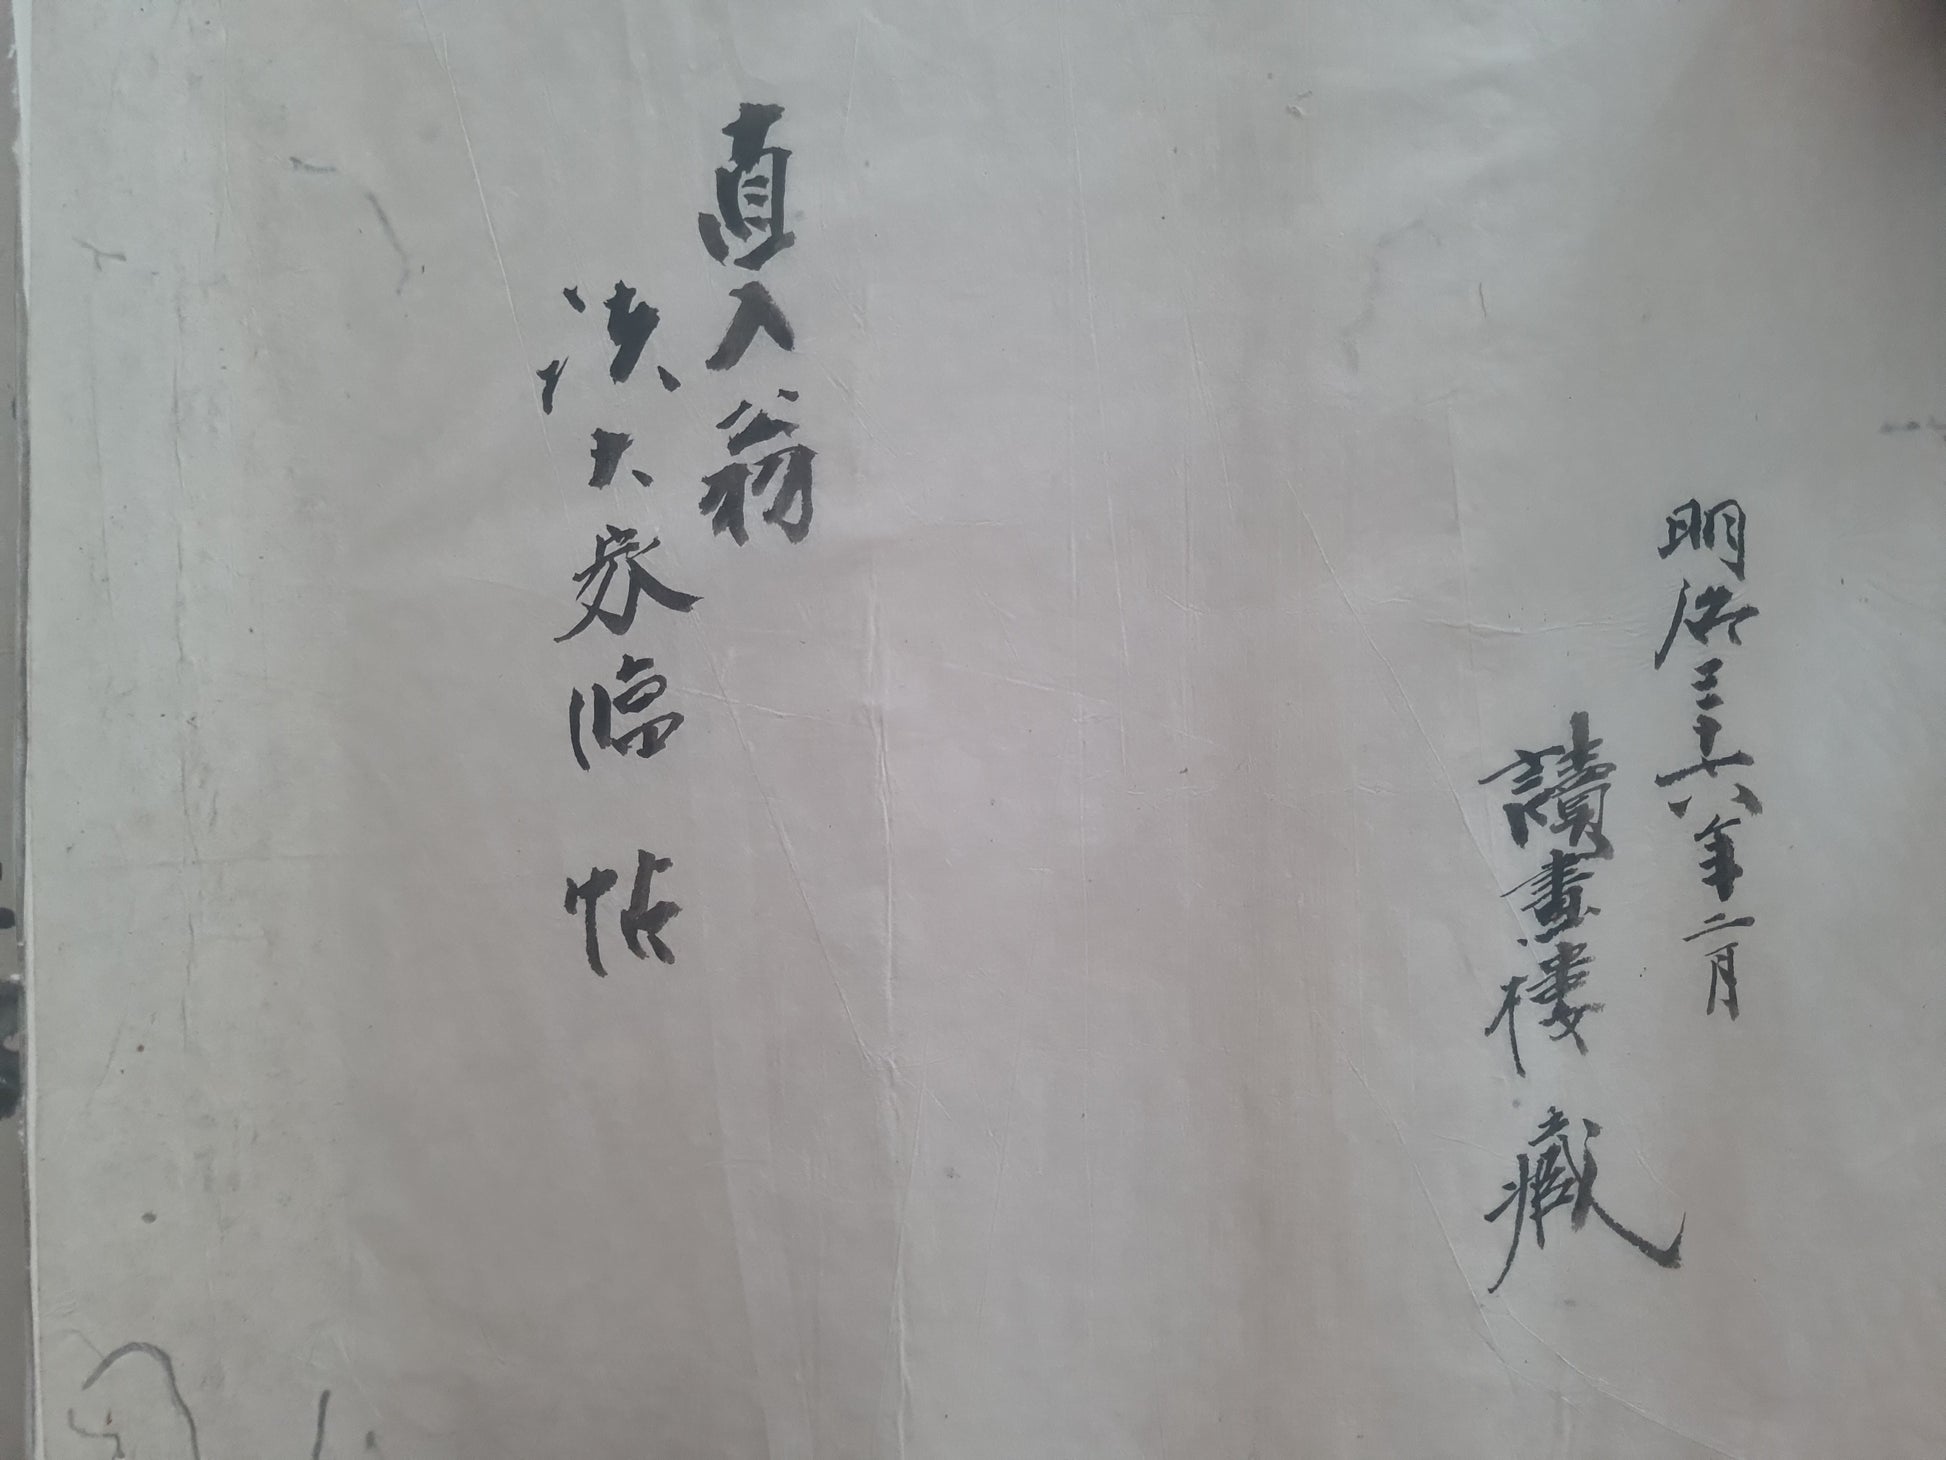 明治三十六年二月
讀畫樓藏
直入翁
大家臨帖